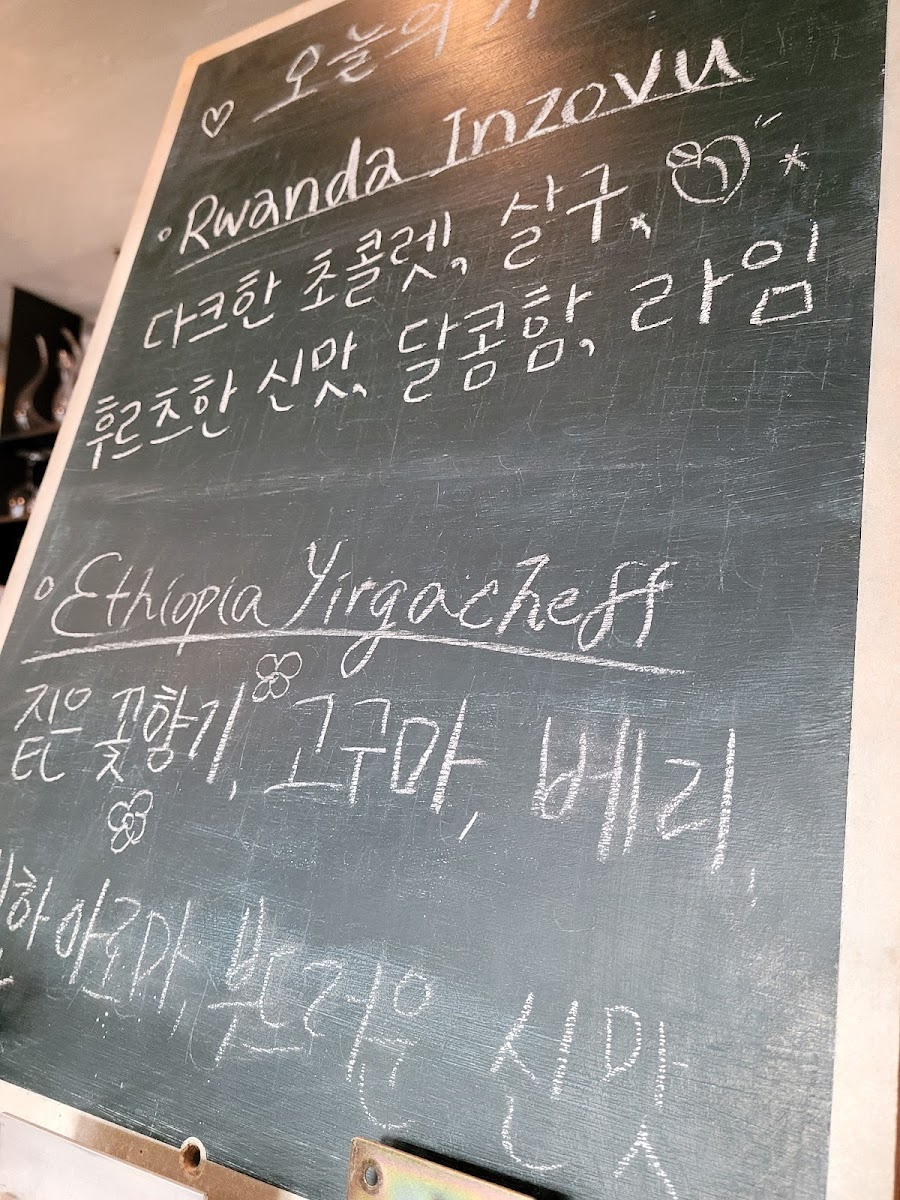 오늘의
Rwanda Inzovu
다크한 초콜렛, 살구,
후르츠한 신맛, 달콤함, 라임
Ethiopia Yirgacheff
짙은 꽃향기, 고구마, 베리,
아로마, 부드러운 신맛